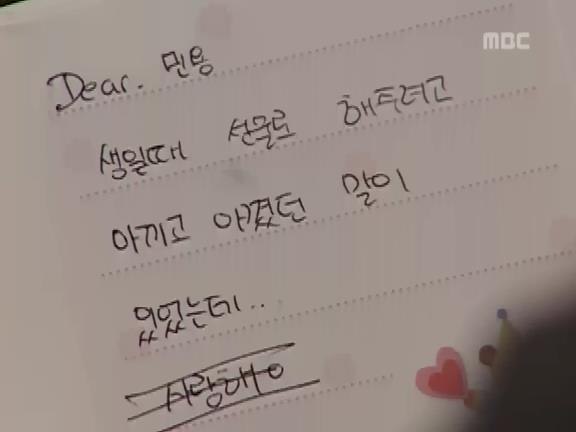 MBC
Dear. 민용
생일때 선물로 해주려고
아끼고 아꼈던 말이
있었는데..
사랑해요